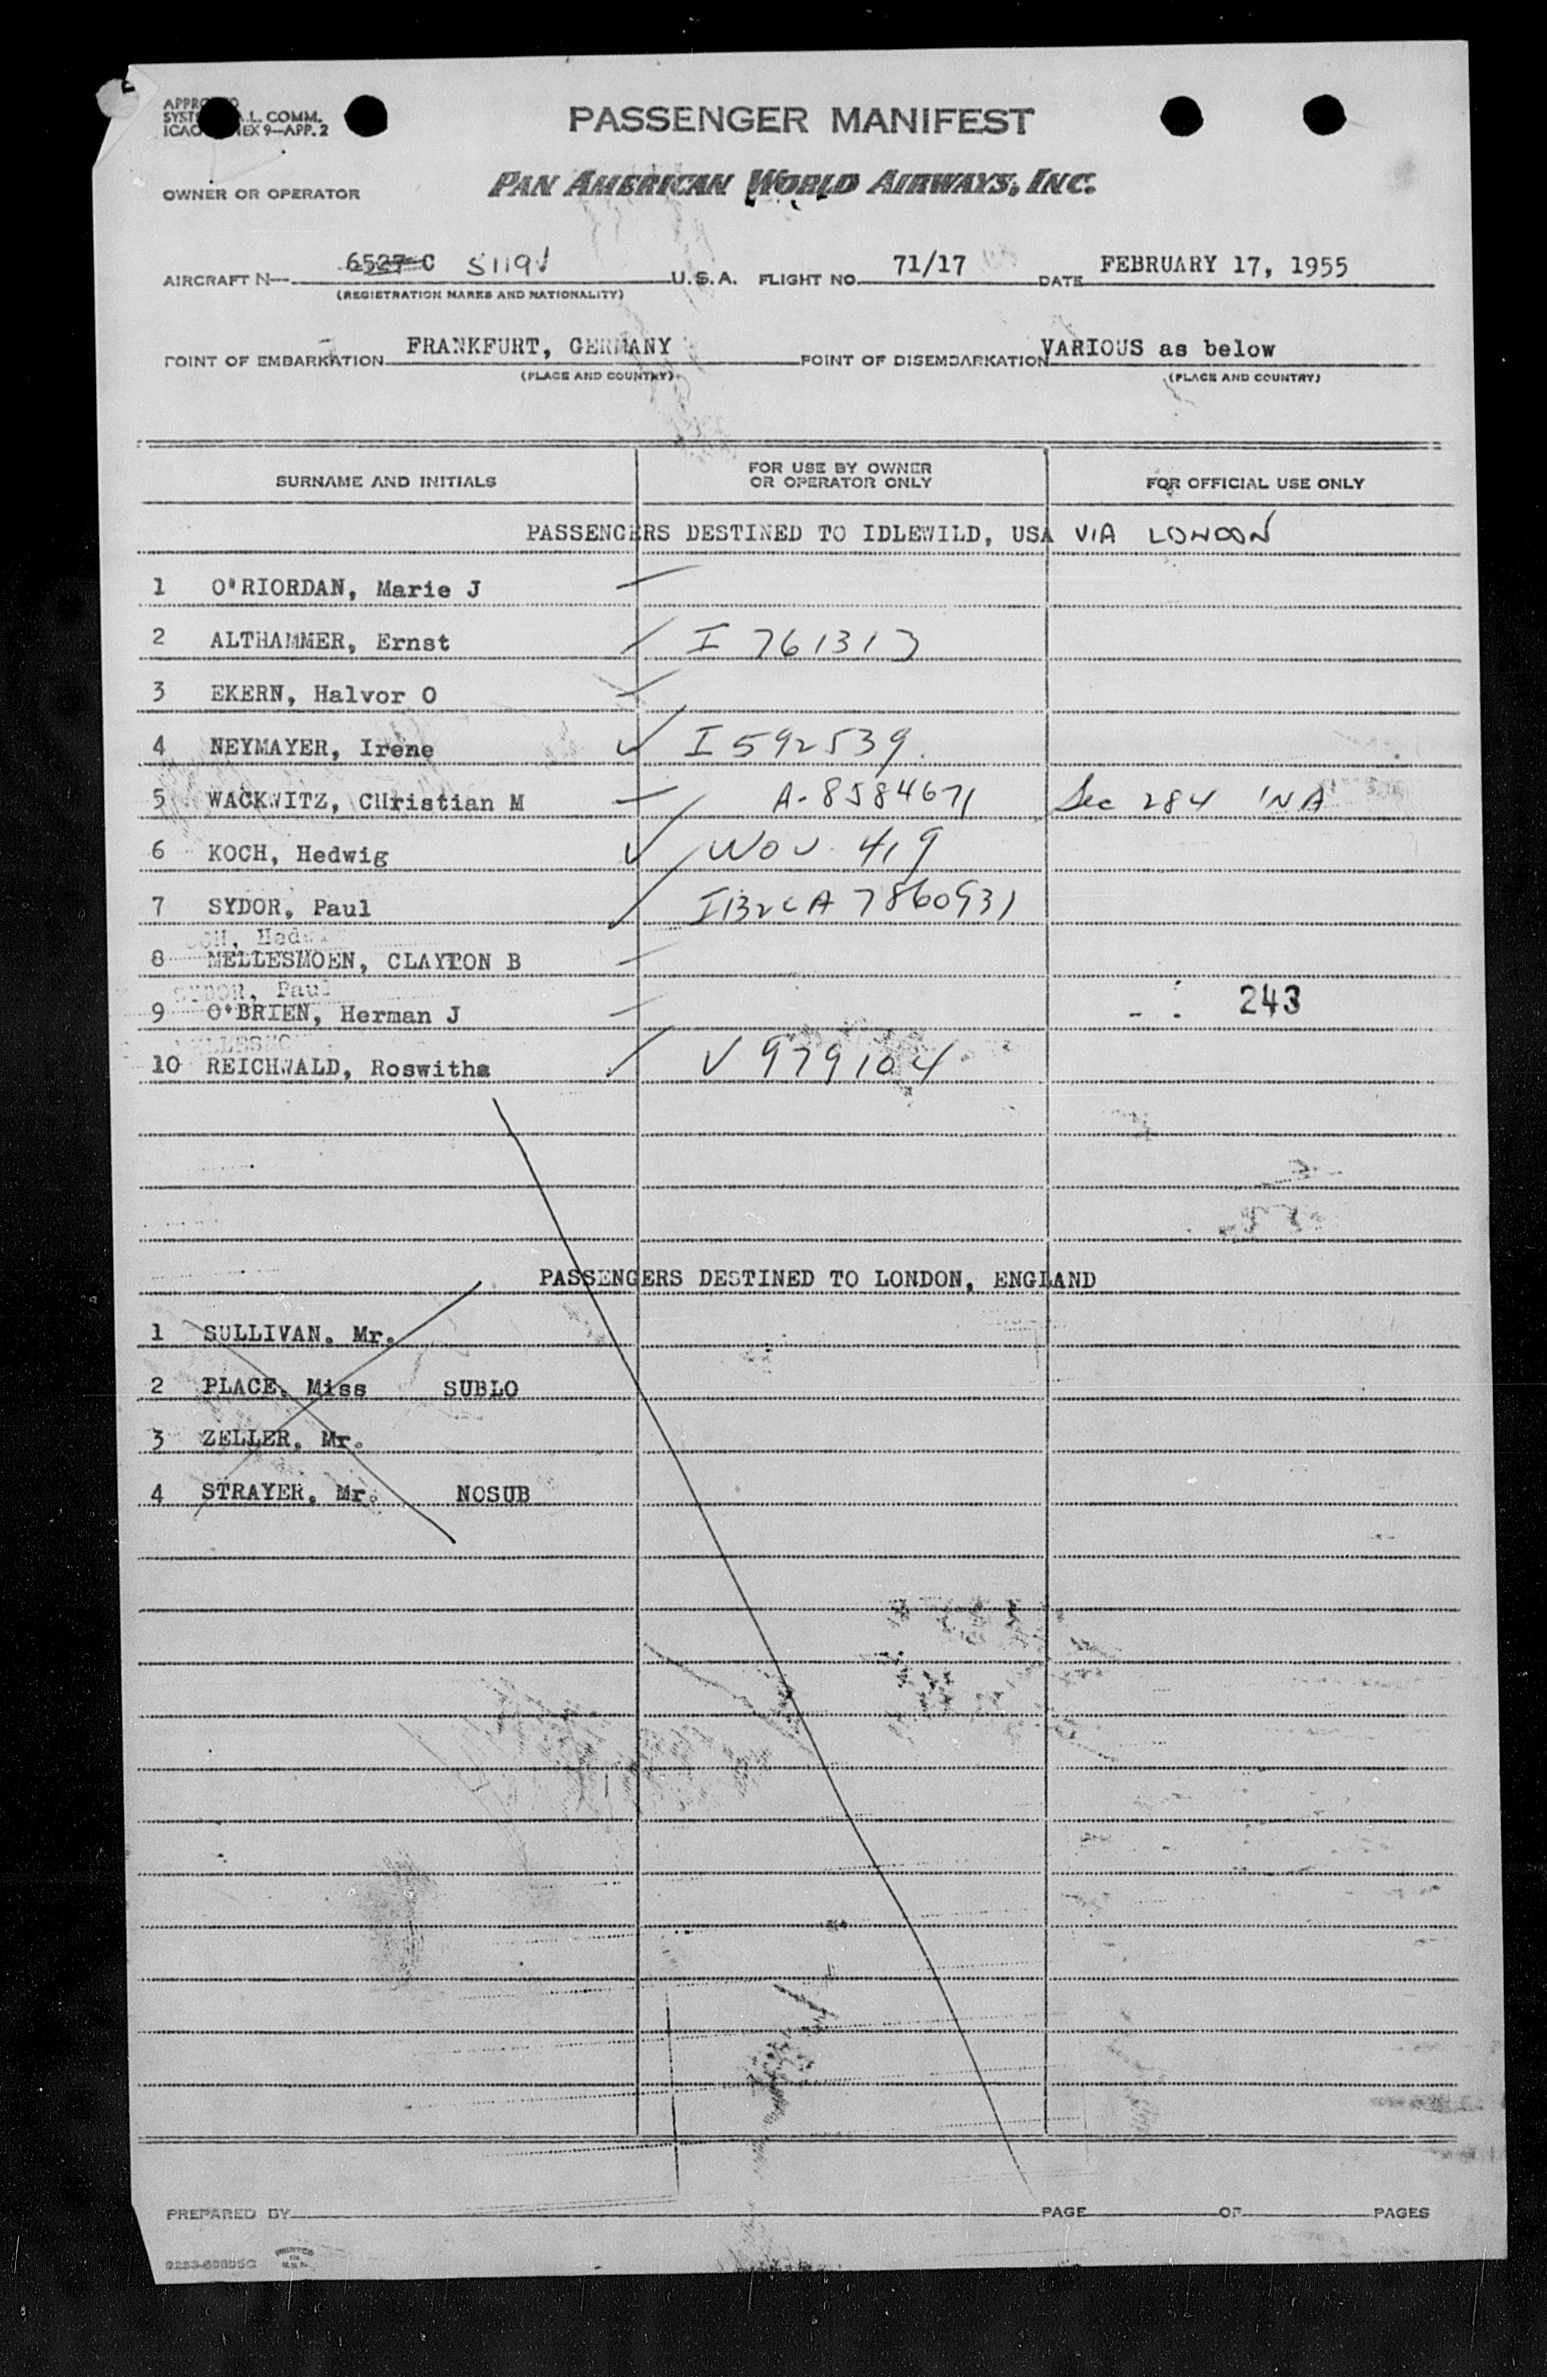 PASSENGER MANIFEST
L. COMM.
9—APP. 2
OWNER OR OPERATOR PAN AMERICAN WORLD AIRWAYS, INC.
AIRCRAFT N— 6527 C 5119V U.S.A. FLIGHT NO. 71/17 DATE FEBRUARY 17, 1955
(REGISTRATION MARKS AND NATIONALITY)
POINT OF EMBARKATION FRANKFURT, GERMANY POINT OF DISEMBARKATION VARIOUS as below
(PLACE AND COUNTRY) (PLACE AND COUNTRY)
SURNAME AND INITIALS FOR USE BY OWNER OR OPERATOR ONLY FOR OFFICIAL USE ONLY
PASSENGERS DESTINED TO IDLEWILD, USA VIA LONDON
1 O'RIORDAN, Marie J
2 ALTHAMMER, Ernst I 761317
3 EKERN, Halvor O
4 NEYMAYER, Irene I 592539
5 WACKWITZ, CHristian M A-8584671 Sec 284 INA
6 KOCH, Hedwig WOV 419
7 SYDOR, Paul I132CA 7860931
8 MELLESMOEN, CLAYTON B
SYDOR, Paul
9 O'BRIEN, Herman J 243
10 REICHWALD, Roswitha V 979104
PASSENGERS DESTINED TO LONDON, ENGLAND
1 SULLIVAN. Mr.
2 PLACE. Miss SUBLO
3 ZELLER. Mr.
4 STRAYER. Mr. NOSUB
PREPARED BY PAGE OF PAGES
PRINTED IN U.S.A.